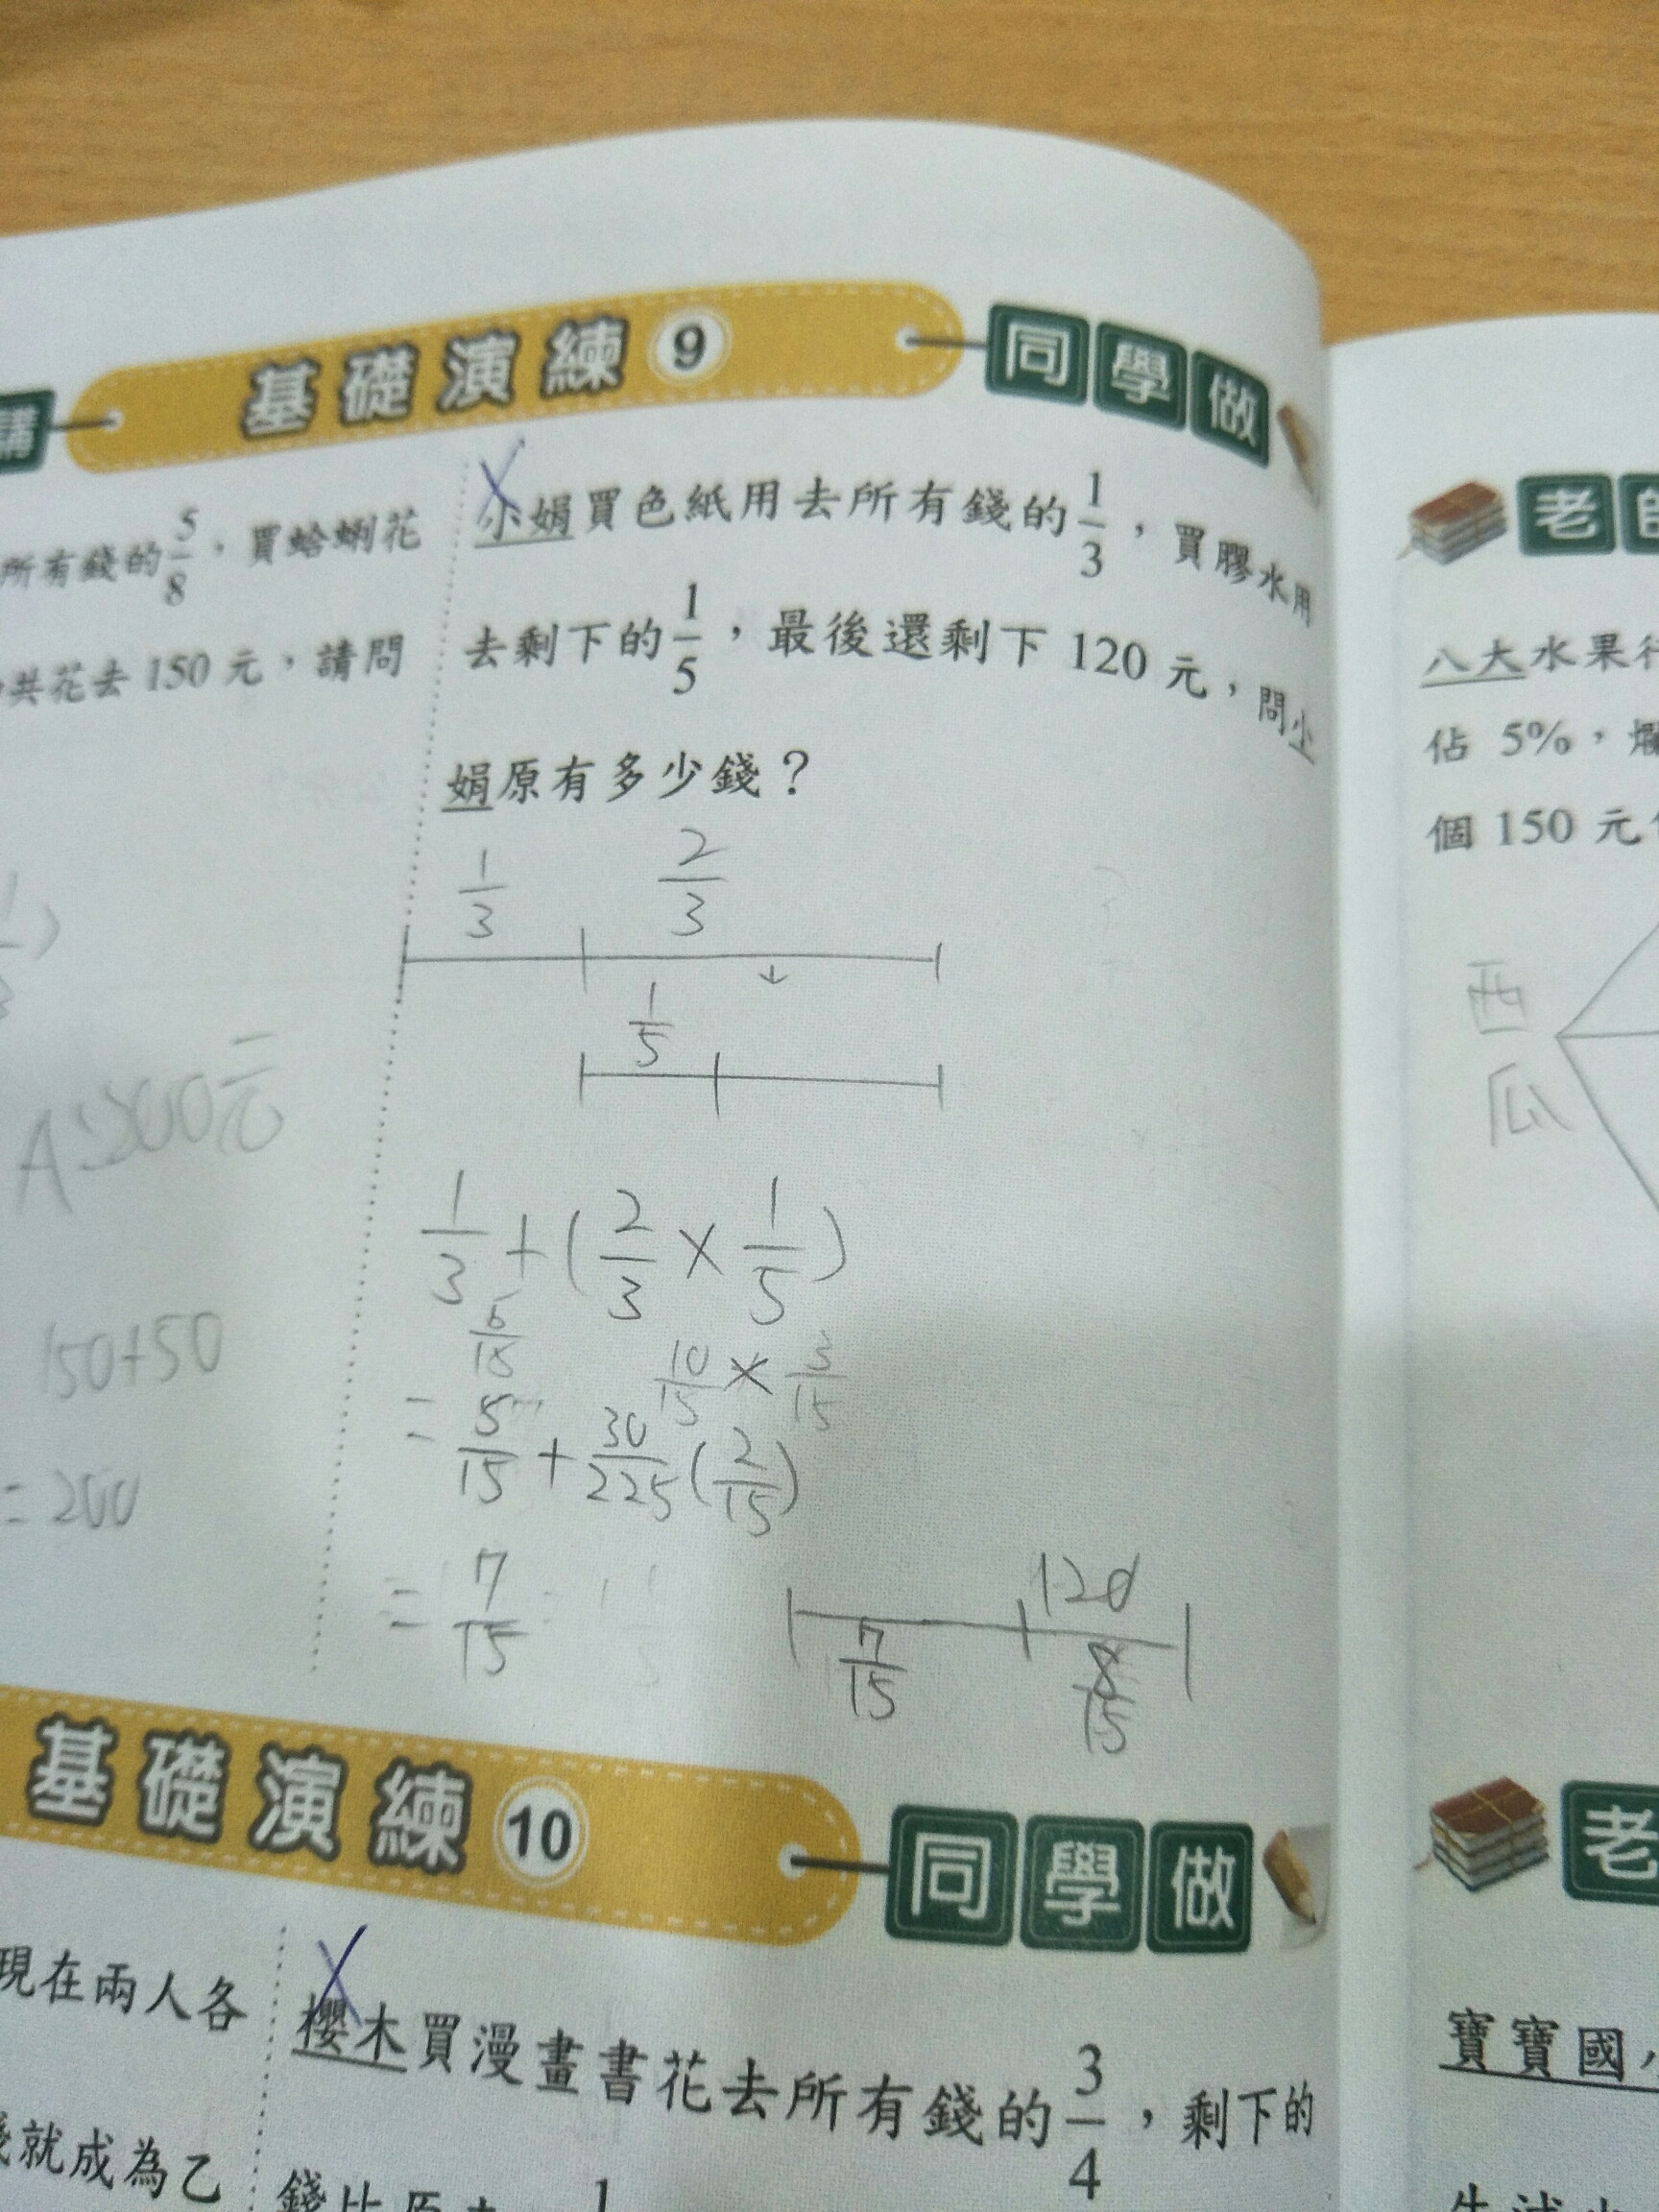 講 基礎演練 9 同學做
所有錢的5/8，買蛤蜊花
共花去 150 元，請問
A:200元
150+50
=200
小娟買色紙用去所有錢的1/3，買膠水用
去剩下的1/5，最後還剩下 120 元，問小
娟原有多少錢？
1/3 2/3
1/5
1/3+(2/3×1/5)
10/15×3/15
=5/15+30/225(2/15)
=7/15
120
7/15 8/15
基礎演練 10 同學做
現在兩人各
就成為乙
櫻木買漫畫書花去所有錢的3/4，剩下的
老
八大水果行
佔 5%，爛
個 150 元
西
瓜
老
寶寶國，